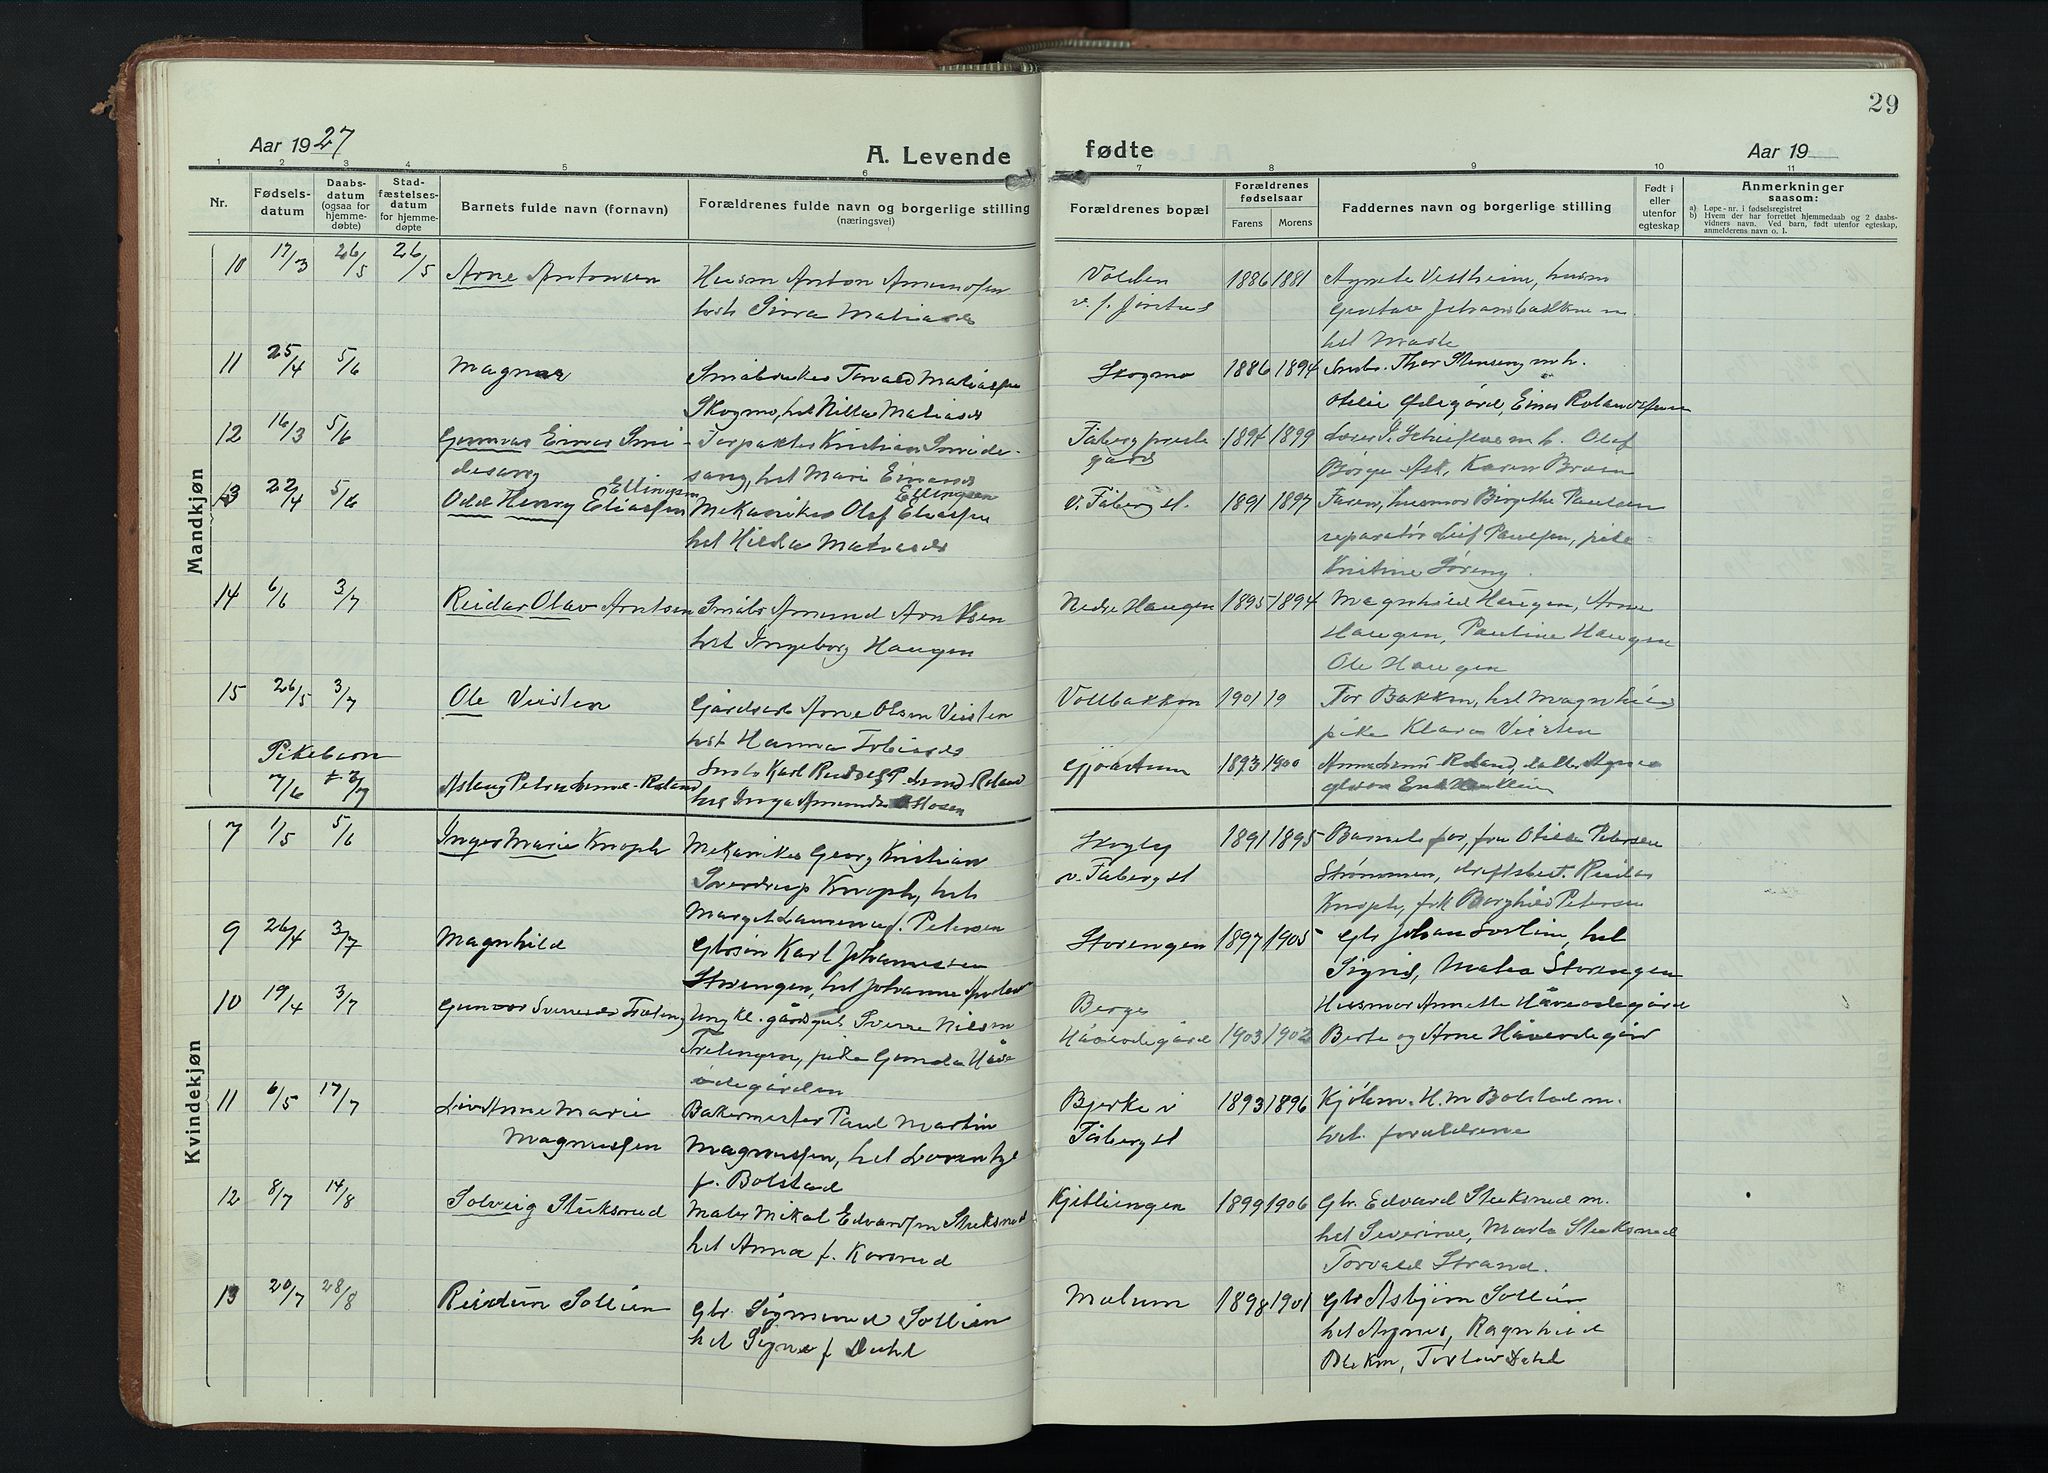 29
Aar 1927
A. Levende fødte
Aar 19
1 2 3 4 5 6 7 8 9 10 11
Nr.
Fødsels-datum
Daabs-datum (ogsaa for hjemme-døbte)
Stad-fæstelses-datum for hjemme-døpte
Barnets fulde navn (fornavn)
Forældrenes fulde navn og borgerlige stilling (næringsvei)
Forældrenes bopæl
Forældrenes fødselsaar
Farens Morens
Faddernes navn og borgerlige stilling
Født i eller utenfor egteskap
Anmerkninger saasom:
a) Løpe-nr. i fødselsregistret
b) Hvem der har forrettet hjemmedaab og 2 daabs-vidners navn. Ved barn, født utenfor egteskap, anmelderens navn o. l.
Mandkjøn
10 17/3 26/5 26/5 Arne Antonsen Husm Anton Amundsen Volden 1886 1881 Agnete Vestheim, husm
v. f. Jørstad
hst
11 25/4 5/6 Magnar Småbruker Torvald Matiassen Skogmo 1886 1894 Småbr. Thor Stenseng m. h.
Skogmo, hst Matiasd Otilie Ødegård, Einar Rolandsen
12 16/3 5/6 Gunnar Einar Smi- Forpakter Kristian Smide- Fåberg preste 1894 1899 m h. Olaf
desang sang, hst Mari Einarsd gård Børge Ask, Karen Braen
13 22/4 5/6 Odd Henry Eliassen Ellingsen Mekaniker Olaf Eliassen Ellingsen v. Fåberg st. 1891 1897 Faren, husmor Birgithe Paulsen
hst Hilda Matiasd reparatør Leif Paulsen, pike
Kristine Søreng
14 6/6 3/7 Reidar Olav Arntsen Småbr Amund Arntsen Nedre Haugen 1895 1894 Magnhild Haugen, Arne
hst Ingeborg Haugen Haugen, Pauline Haugen
Ole Haugen
15 26/5 3/7 Ole Veisten Gårdsarb Arne Olsen Veisten Vollbakken 1901 19 Tor Bakken, hst Magnhild
hst Hanna Tobiasd pike Klara Veisten
Pikebarn
7/6 3/7 Aslaug Petra Roland Småb Karl Roland 1893 1900
hst Inga Amundsd Mosen
Kvindekjøn
7 1/5 5/6 Inger Marie Knoph Mekaniker Georg Kristian Skogly 1891 1895 Barnets far, fru Otilie Petersen
Sverdrup Knoph, hst v. Fåberg st Strømmen, driftsbest. Reidar
Margit Laurena f. Petersen Knoph, frk Borghild Petersen
9 26/4 3/7 Magnhild Gbrsøn Karl Johannessen Storengen 1897 1905 Gbr Johan Sorlien, hst
Storengen, hst Johanne Sigrid, Matea Storengen
10 19/4 3/7 Gunvor Sverresd Ungkl. gårdsgut Sverre Nilsen Berge Husmor Annette Håveødegård
pike Gunda Håve- Håveødegård 1903 1902 Berte og Arne Håveødegård
ødegården
11 6/5 17/7 Liv Anne Marie Bakermester Paul Martin Bjerke v 1893 1896 Kjøbm. H. M Bolstad m.
Magnussen Magnussen, hst Fåberg st hst. forældrene
f. Bolstad
12 8/7 14/8 Solveig Stuksrud Maler Mikal Edvardsen Stuksrud Kjetliengen 1899 1906 Gbr. Edvard Stuksrud m.
hst Anna f. Korsrud hst Severine, Marta Stuksrud
Torvald Strand.
13 20/7 28/8 Reidun Sollien Gbr. Sigmund Sollien Molum 1898 1901 Gbr Asbjørn Sollien
hst Signe f. Dahl hst Agnes, Ragnhild
Torleiv Dahl